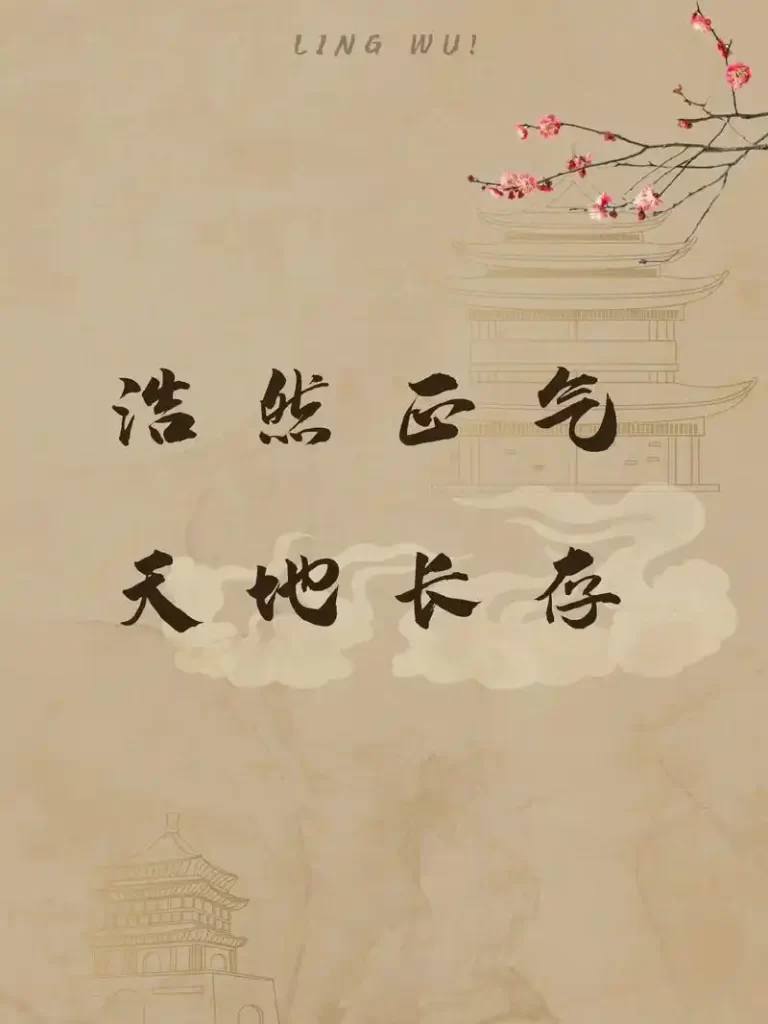 LING WU!
浩然正气
天地长存